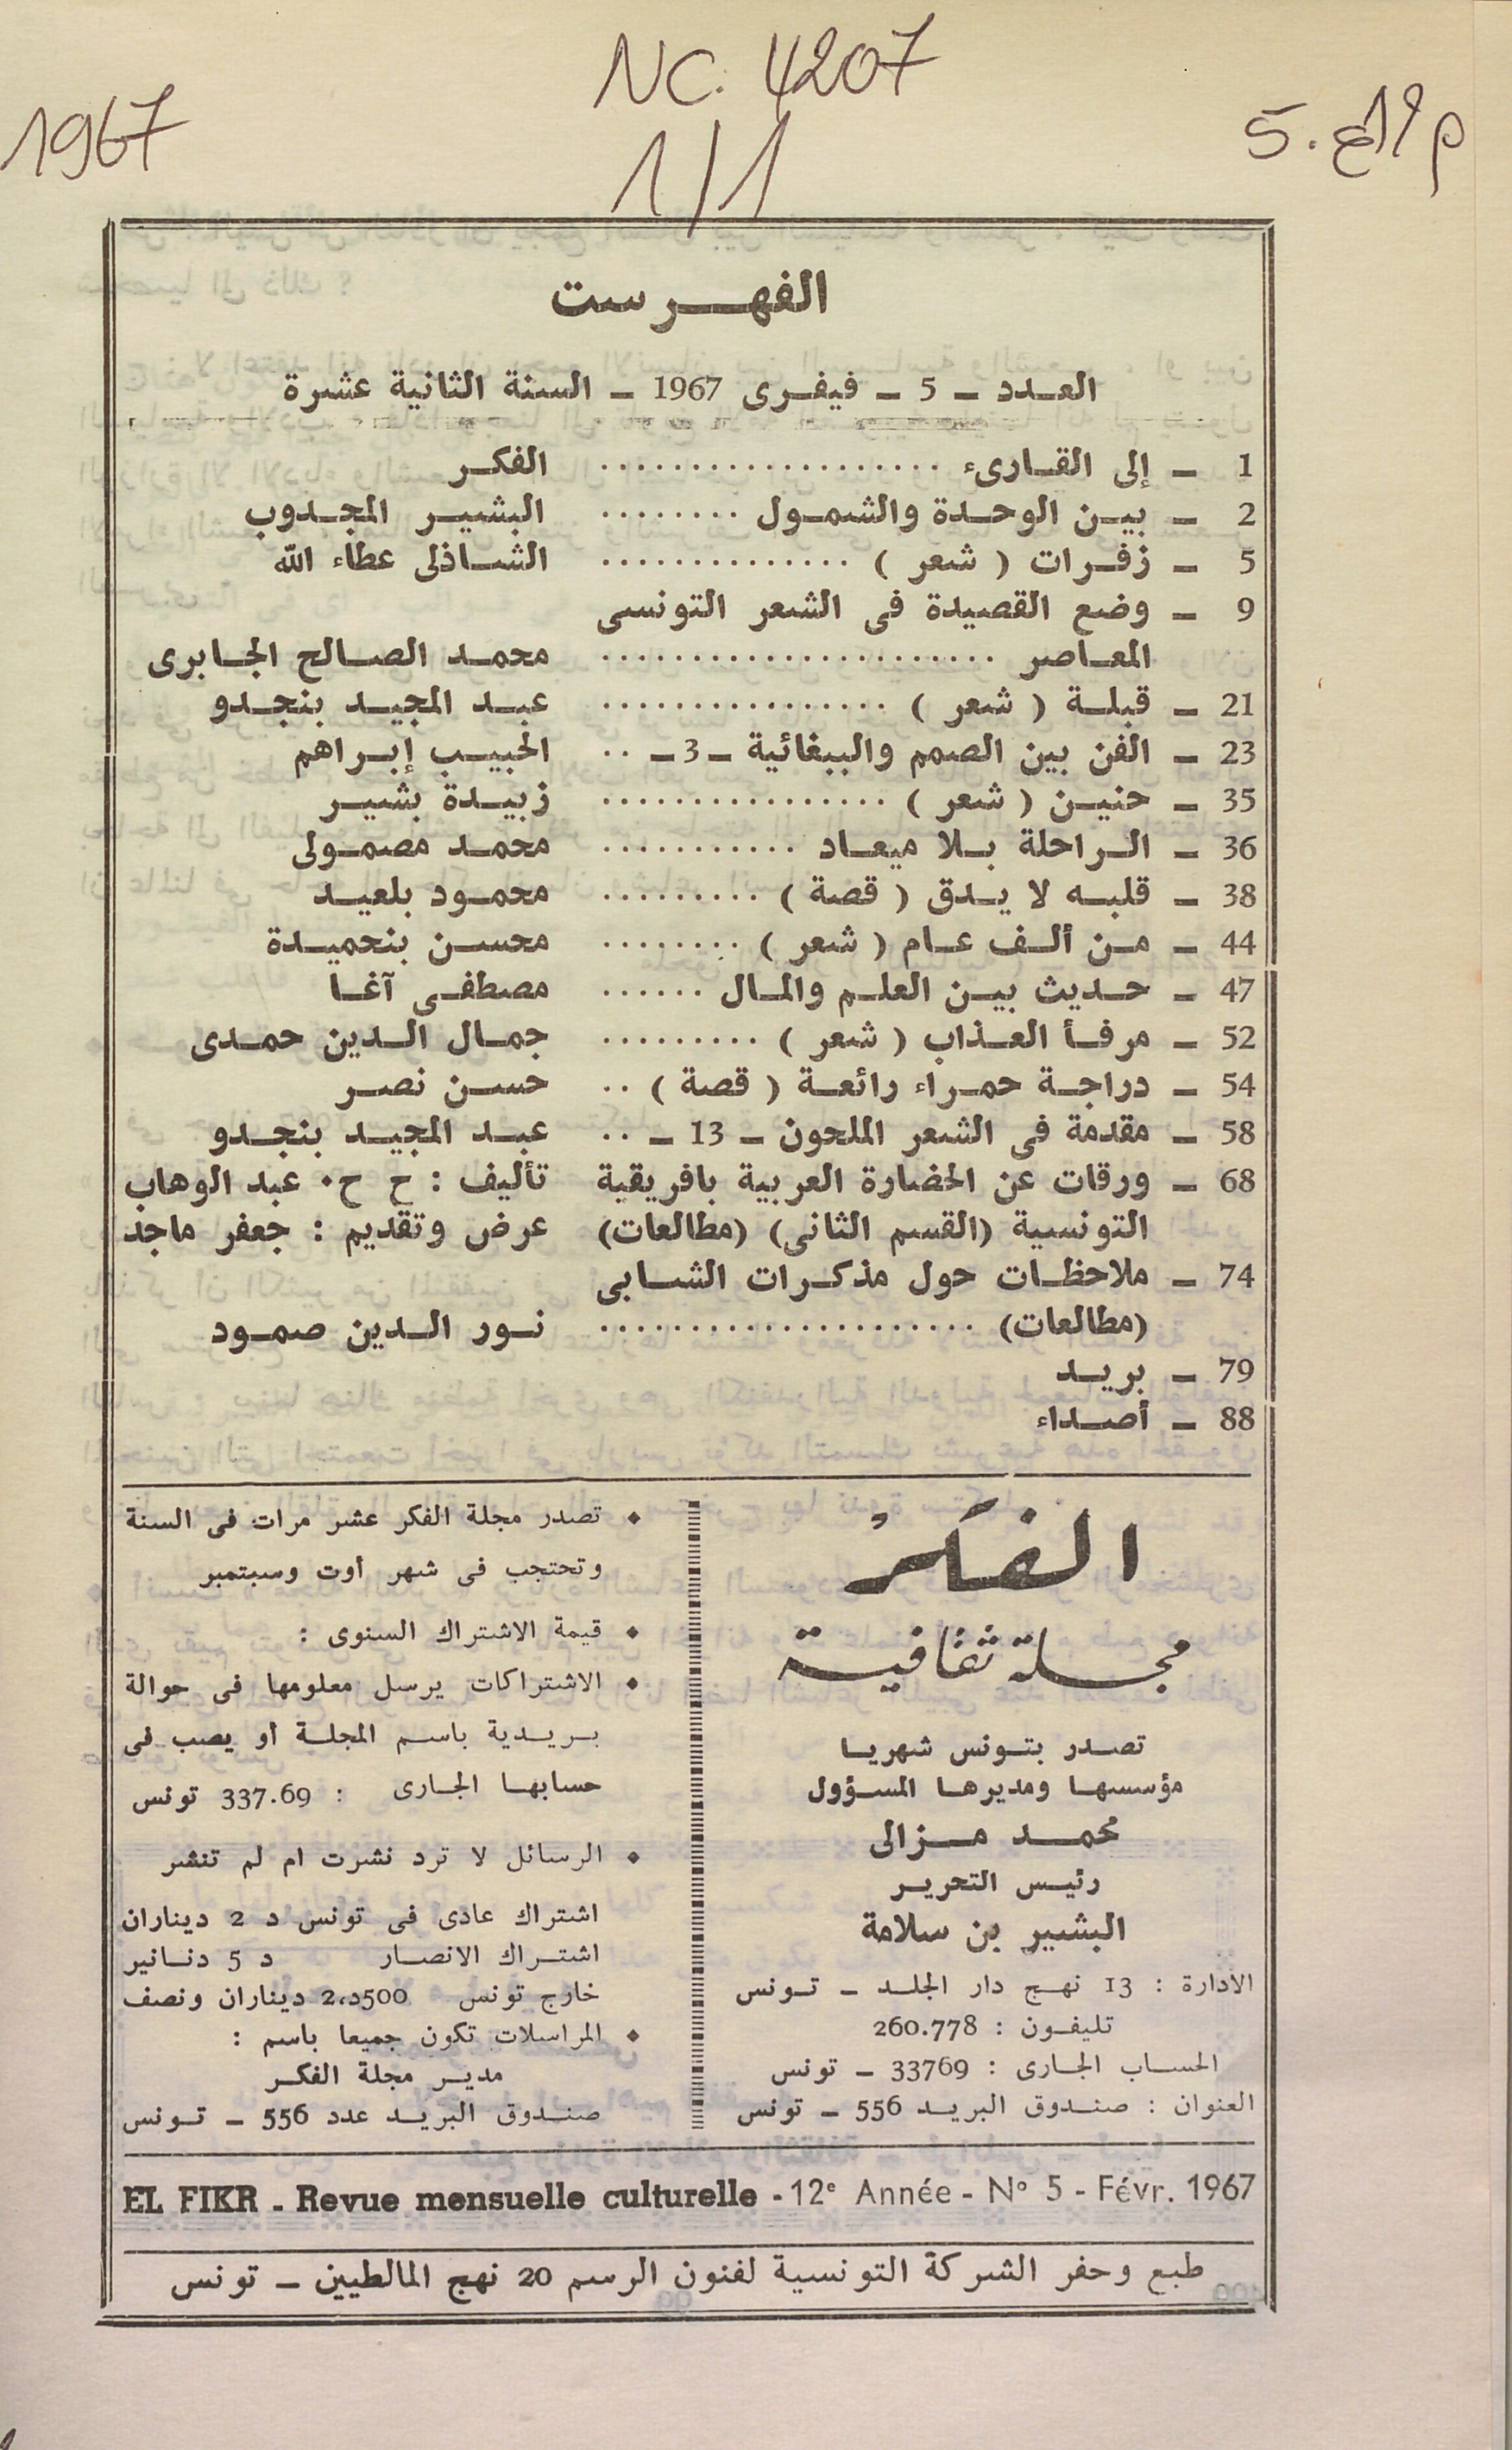 NC. 4207
1967
1/1
5.
الفهرست
العدد ــ 5 ــ فيفرى 1967 ــ السنة الثانية عشرة
1 ــ إلى القارىء .................. الفكر
2 ــ بين الوحدة والشمول ........ البشير المجدوب
5 ــ زفرات ( شعر ) .............. الشاذلى عطاء الله
9 ــ وضع القصيدة فى الشعر التونسى
المعاصر ..................... محمد الصالح الجابرى
21 ــ قبلة ( شعر ) ................ عبد المجيد بنجدو
23 ــ الفن بين الصمم والببغائية ــ 3 ــ .. الحبيب إبراهم
35 ــ حنين ( شعر ) ................ زبيدة بشير
36 ــ الراحلة بلا ميعاد ........... محمد مصمولى
38 ــ قلبه لا يدق ( قصة ) ......... محمود بلعيد
44 ــ من ألف عام ( شعر ) ........ محسن بنحميدة
47 ــ حديث بين العلم والمال ...... مصطفى آغا
52 ــ مرفأ العذاب ( شعر ) ......... جمال الدين حمدى
54 ــ دراجة حمراء رائعة ( قصة ) .. حسن نصر
58 ــ مقدمة فى الشعر الملحون ــ 13 ــ .. عبد المجيد بنجدو
68 ــ ورقات عن الحضارة العربية بافريقية تأليف : ح ح. عبد الوهاب
التونسية (القسم الثانى) (مطالعات) عرض وتقديم : جعفر ماجد
74 ــ ملاحظات حول مذكرات الشابى
(مطالعات) .................... نور الدين صمود
79 ــ بريد
88 ــ أصداء
الفكر
مجلة ثقافية
تصدر بتونس شهريا
مؤسسها ومديرها المسؤول
محمد مزالى
رئيس التحرير
البشير بن سلامة
الادارة : 13 نهج دار الجلد ــ تونس
تليفون : 260.778
الحساب الجارى : 33769 ــ تونس
العنوان : صندوق البريد 556 ــ تونس
♦ تصدر مجلة الفكر عشر مرات فى السنة
وتحتجب فى شهر أوت وسبتمبر
♦ قيمة الاشتراك السنوى :
♦ الاشتراكات يرسل معلومها فى حوالة
بريدية باسم المجلة أو يصب فى
حسابها الجارى : 337.69 تونس
♦ الرسائل لا ترد نشرت ام لم تنشر
اشتراك عادى فى تونس د 2 ديناران
اشتراك الانصار د 5 دنانير
خارج تونس 500د،2 ديناران ونصف
♦ المراسلات تكون جميعا باسم :
مدير مجلة الفكر
صندوق البريد عدد 556 ــ تونس
EL FIKR - Revue mensuelle culturelle - 12e Année - N° 5 - Févr. 1967
طبع وحفر الشركة التونسية لفنون الرسم 20 نهج المالطيين ــ تونس